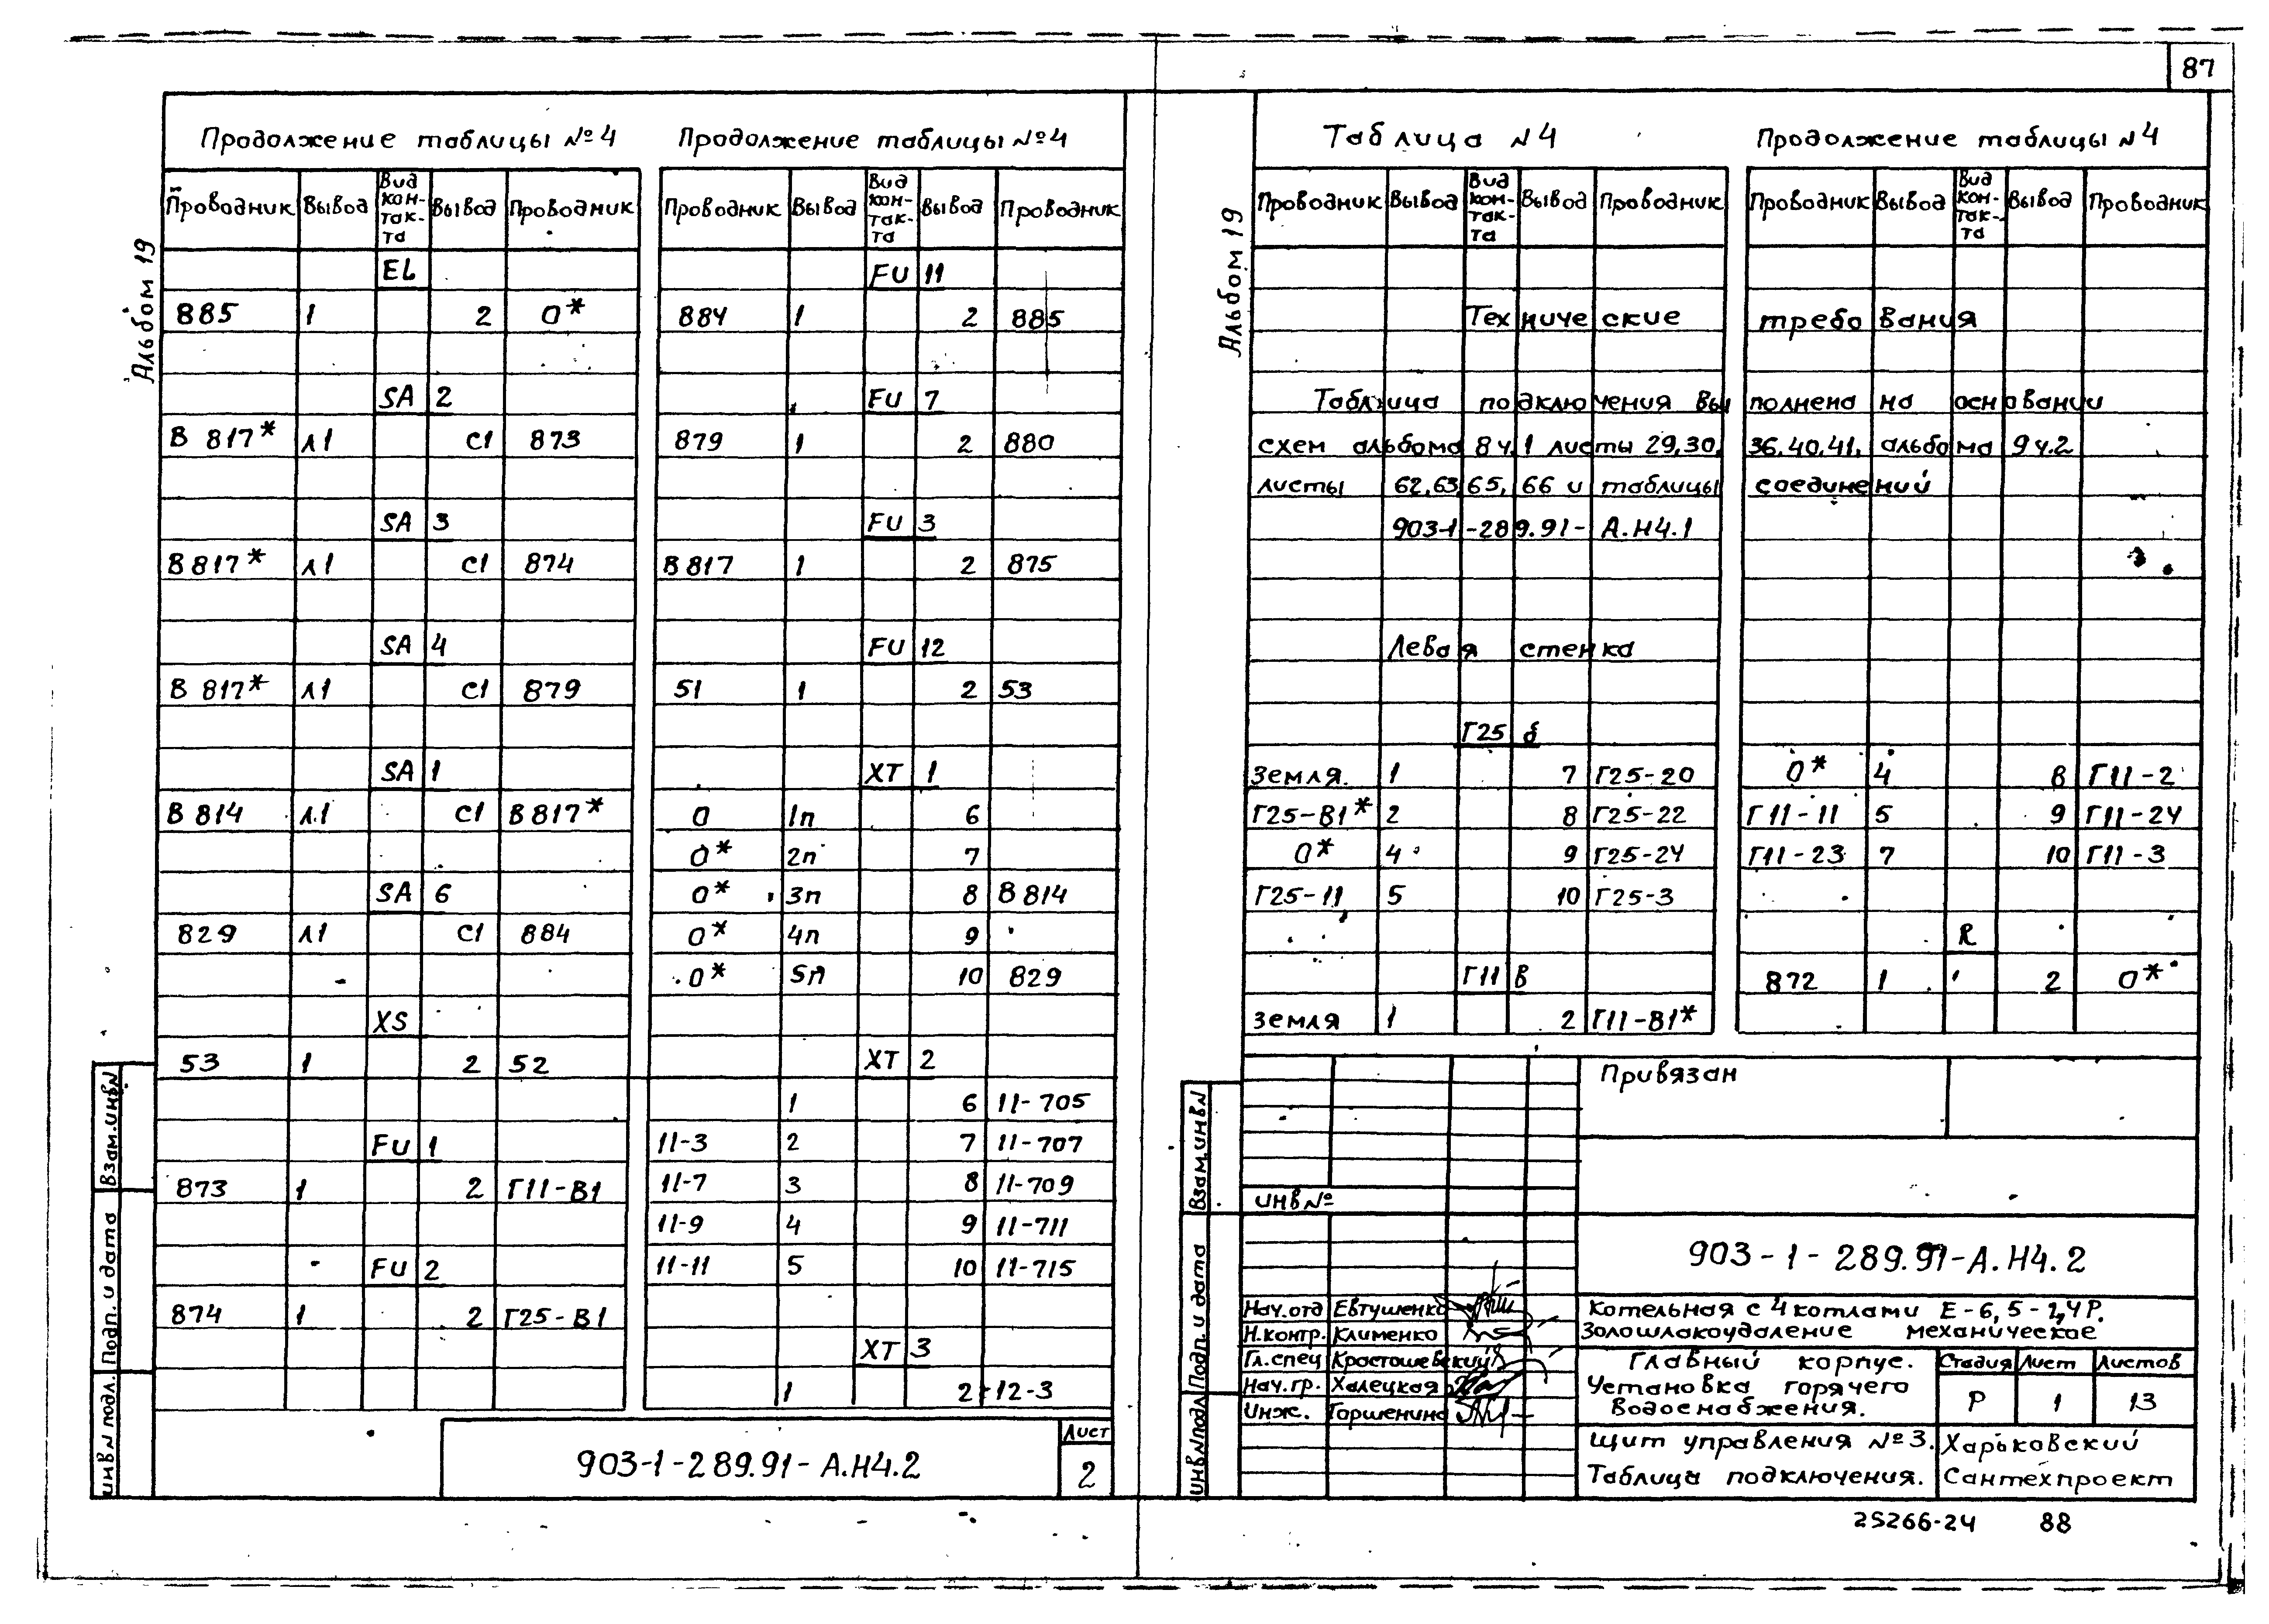 87
Альбом 19
Продолжение таблицы №4
Проводник Вывод Вид кон-так-та Вывод Проводник
EL
885 1 2 0*
SA 2
В 817* л1 С1 873
SA 3
В 817* л1 С1 874
SA 4
В 817* л1 С1 879
SA 1
В 814 л1 С1 В 817*
SA 6
829 л1 С1 884
XS
53 1 2 52
FU 1
873 1 2 Г11-В1
FU 2
874 1 2 Г25-В1
Продолжение таблицы №4
Проводник Вывод Вид кон-так-та Вывод Проводник
FU 11
884 1 2 885
FU 7
879 1 2 880
FU 3
В 817 1 2 875
FU 12
51 1 2 53
XT 1
0 1п 6
0* 2п 7
0* 3п 8 В 814
0* 4п 9
0* 5п 10 829
XT 2
1 6 11-705
11-3 2 7 11-707
11-7 3 8 11-709
11-9 4 9 11-711
11-11 5 10 11-715
XT 3
1 2 12-3
Взам.инв№
Подп. и дата
инв№подл.
903-1-289.91-А.Н4.2
Лист
2
Альбом 19
Таблица №4
Продолжение таблицы №4
Проводник Вывод Вид кон-так-та Вывод Проводник
Проводник Вывод Вид кон-так-та Вывод Проводник
Технические требования
Таблица подключения выполнена на основании
схем альбома 8 ч.1 листы 29,30, 36,40,41, альбома 9 ч.2
листы 62,63,65, 66 и таблицы соединений
903-1-289.91- А.Н4.1
Левая стенка
Г25 б
Земля 1 7 Г25-20
Г25-В1* 2 8 Г25-22
0* 4 9 Г25-24
Г25-11 5 10 Г25-3
Г11 В
Земля 1 2 Г11-В1*
0* 4 8 Г11-2
Г11-11 5 9 Г11-24
Г11-23 7 10 Г11-3
R
872 1 2 0*
Взам.инв№
Подп. и дата
инв№подл
Привязан
инв№
903-1-289.91-А.Н4.2
Нач.отд Евтушенко
Н.контр. Клименко
Гл.спец Кростошевский
Нач.гр. Халецкая
Инж. Горшенина
Котельная с 4 котлами Е-6,5-1,4Р.
Золошлакоудаление механическое
Главный корпус.
Установка горячего
водоснабжения.
Стадия Лист Листов
Р 1 13
Щит управления №3.
Таблица подключения.
Харьковский
Сантехпроект
25266-24 88